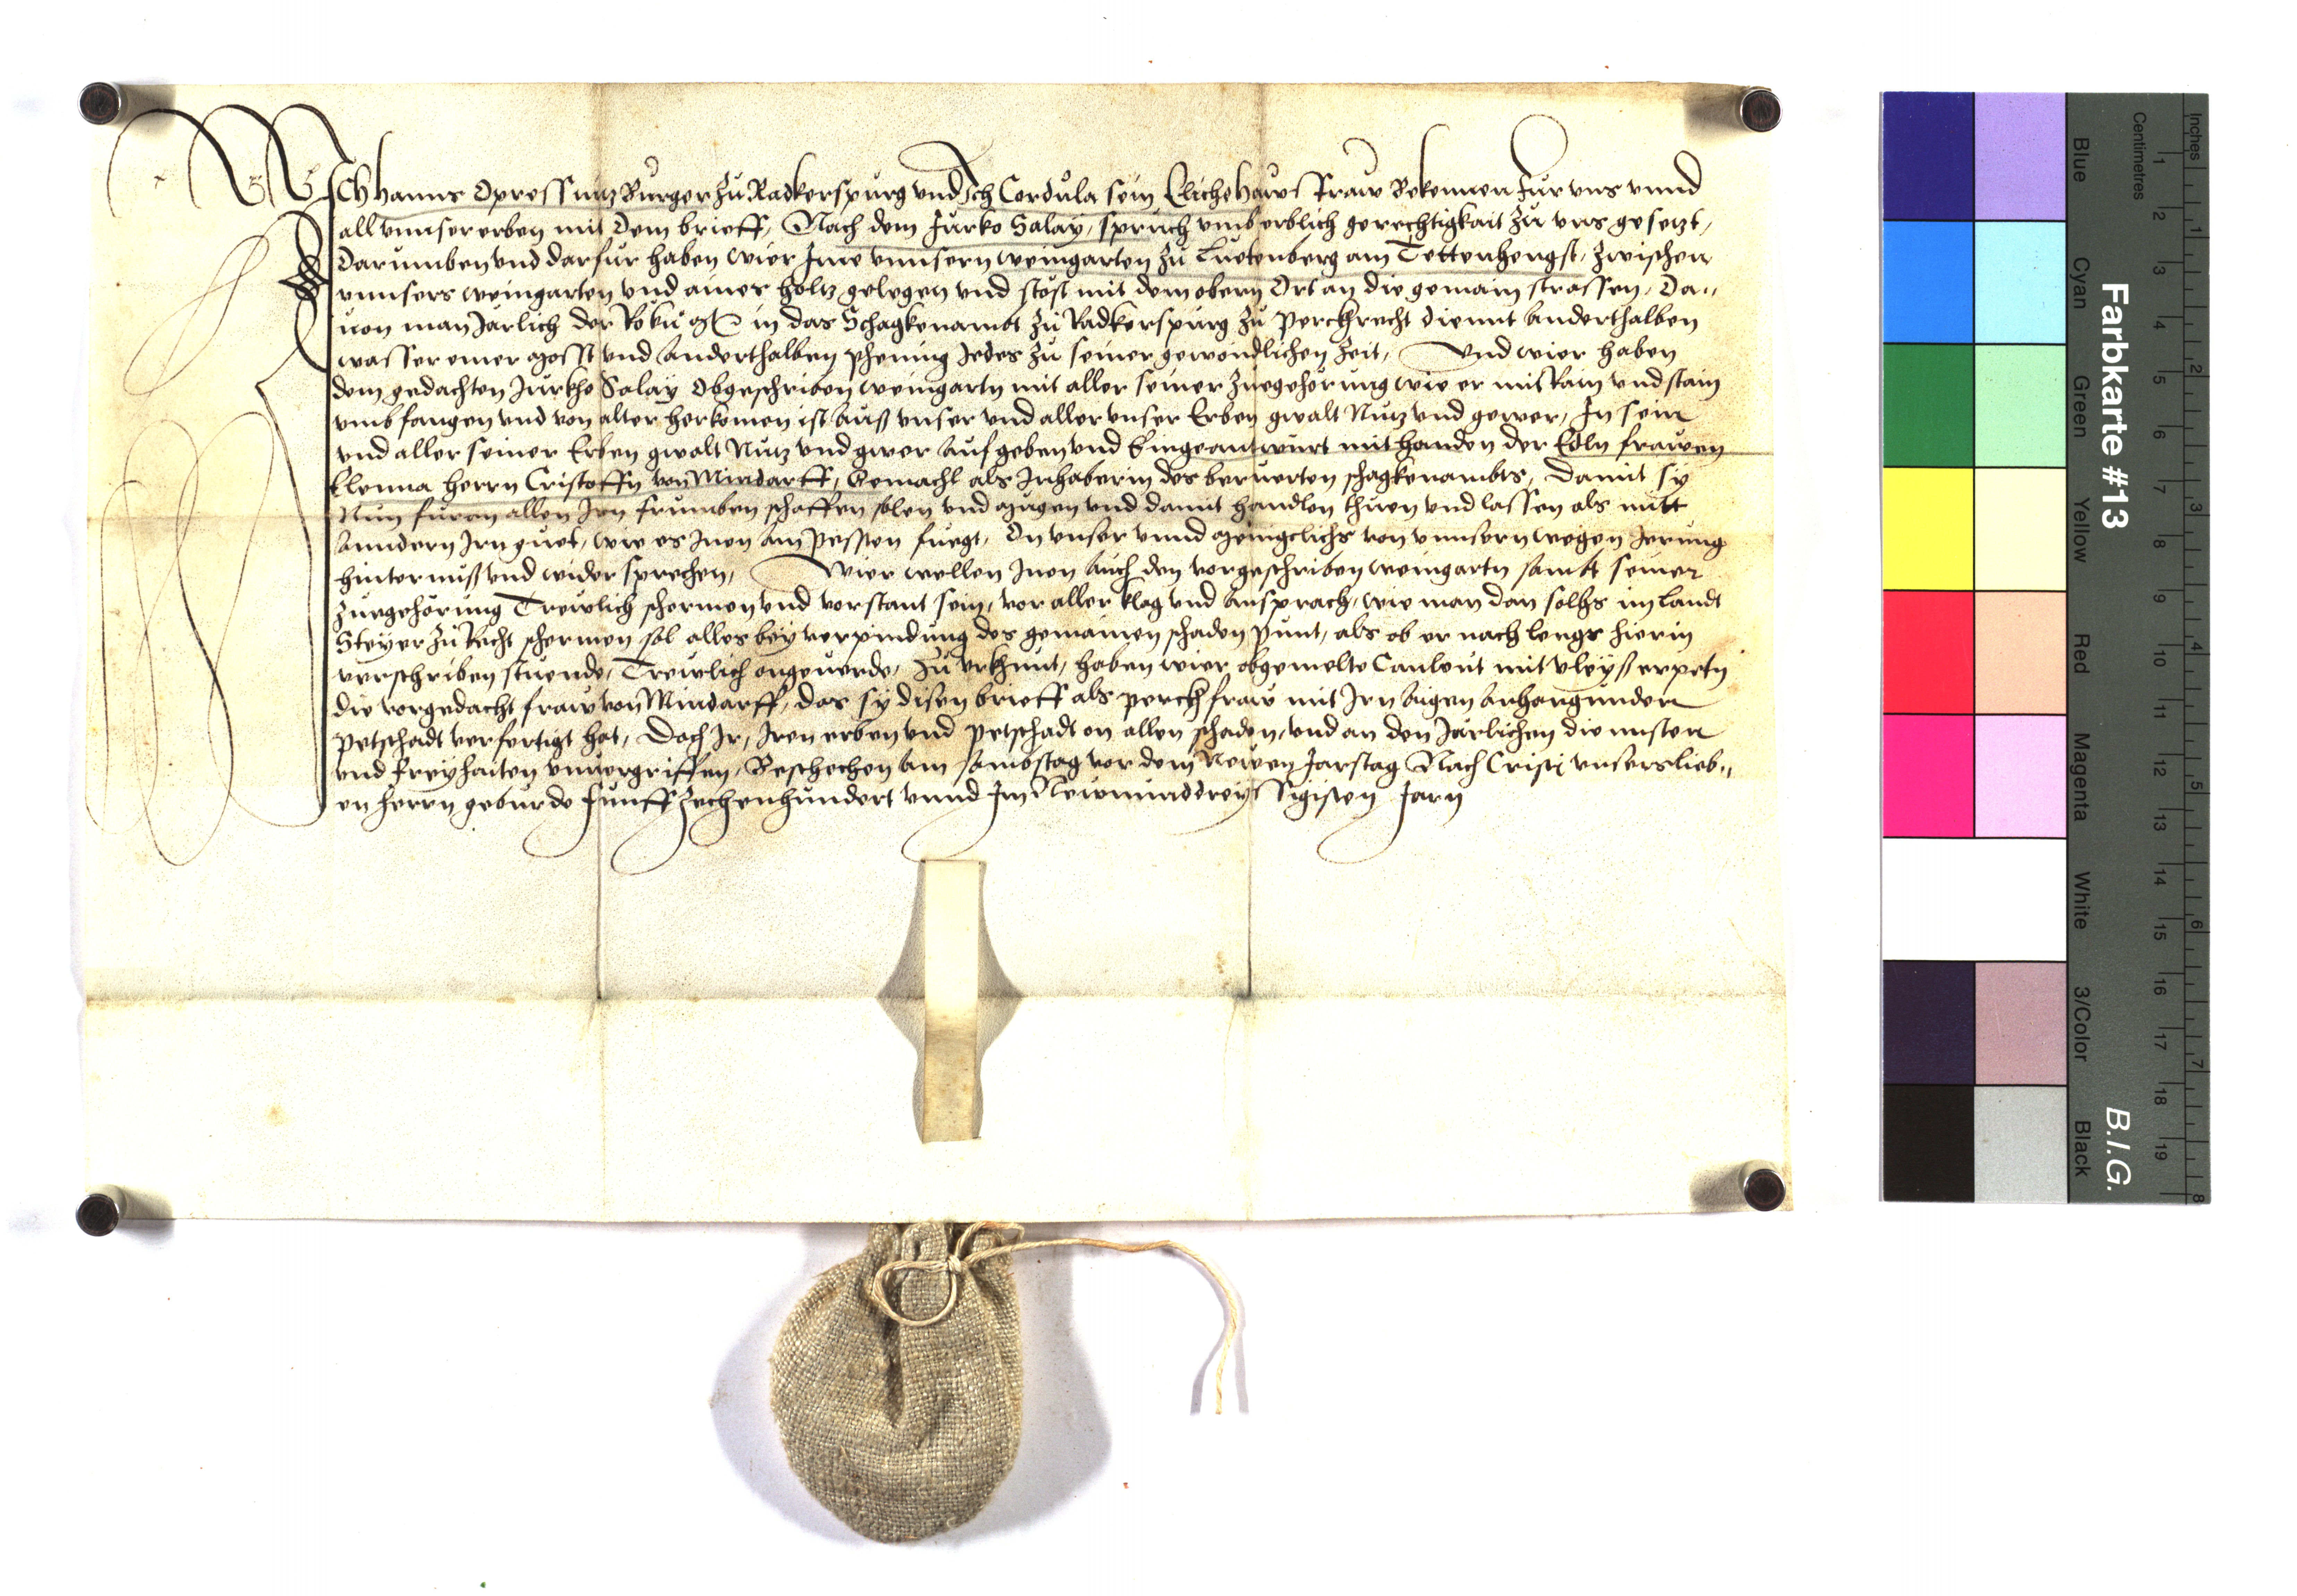 ICH hanns Opressnitz Burger zu Radkerspurg und Ich Cordula sein Eliche hawsfraw Bekennen fur uns unnd
all unnser erben mit dem brieff, Nach dem Jurko Salay, spruch umb erblich gerechtigkait zu uns gesetzt,
Darumben und darfur haben wier Ime unnsern weingarten zu Luetenberg am Tettenhengst, zwischen
unnsers weingarten und aines holtz gelegen und stost mit dem obern Ort an die gemain strassen, Da,,
uon man Jarlich der Ro ku in das Schagkenambt zu Radkerspurg zu perckrecht diennt anderthalben
wasser emer most und anderthalben phening Jedes zu seiner gewondlichen zeit, Und wier haben
dem gedachten Jurkho Salay Obgeschriben weingartn mit aller seiner zuegehorung wie er mit Rain und stain
umbfangen und von alter herkomen ist auß unser und aller unser Erben gwalt Nutz und gewer, In sein
und aller seiner Erben gwalt Nutz und gwer aufgeben und Eingeantwurt mit handen der Edln frawen
Elenna herrn Cristoffn von Mindarff, Gemachl als Inhaberin des beruerten schagkenambts, Damit sy
Nun furan allen Irn frumben schaffen solen und mugen und damit handlen thuen und lassen als mitt
anndern Irn guet, wie es Inen am pessten fuegt, On unser unnd menigclichs von unnsern wegen Irrung
hinternuß und widersprechen, Wier wellen Inen auch den vorgeschriben weingartn sambt seiner
zuegehorung Trewlich schermen und vorstant sein, vor aller klag und ansprach, wie man dan solhs im Landt
Steyer zu Recht schermen sol alles bey verpindung des gemainen schaden punt, als ob er nach lengs hierin
verschriben stuende, Trewlich ongeuerde, Zu urkhunt, haben wier obgemelte Canleut mit vleyß erpetn
die vorgedacht fraw von Mindarff, das sy disen brieff als perckfraw mit Irn aigen anhangunden
petschadt verfertigt hat, Doch Ir, Iren erben und petschadt on allen schaden, und an den Jarlichen diennsten
und freyhaiten unuergriffen, Beschechen am sambstag vor dem Newen Jarstag Nach Cristi unsers lieb,,
en herrn geburde funffzechenhundert unnd Im Newnunddreyssigisten Jarn
Farbkarte #13
B.I.G.
Inches
Centimetres
1 2 3 4 5 6 7 8
1 2 3 4 5 6 7 8 9 10 11 12 13 14 15 16 17 18 19
Blue
Cyan
Green
Yellow
Red
Magenta
White
3/Color
Black